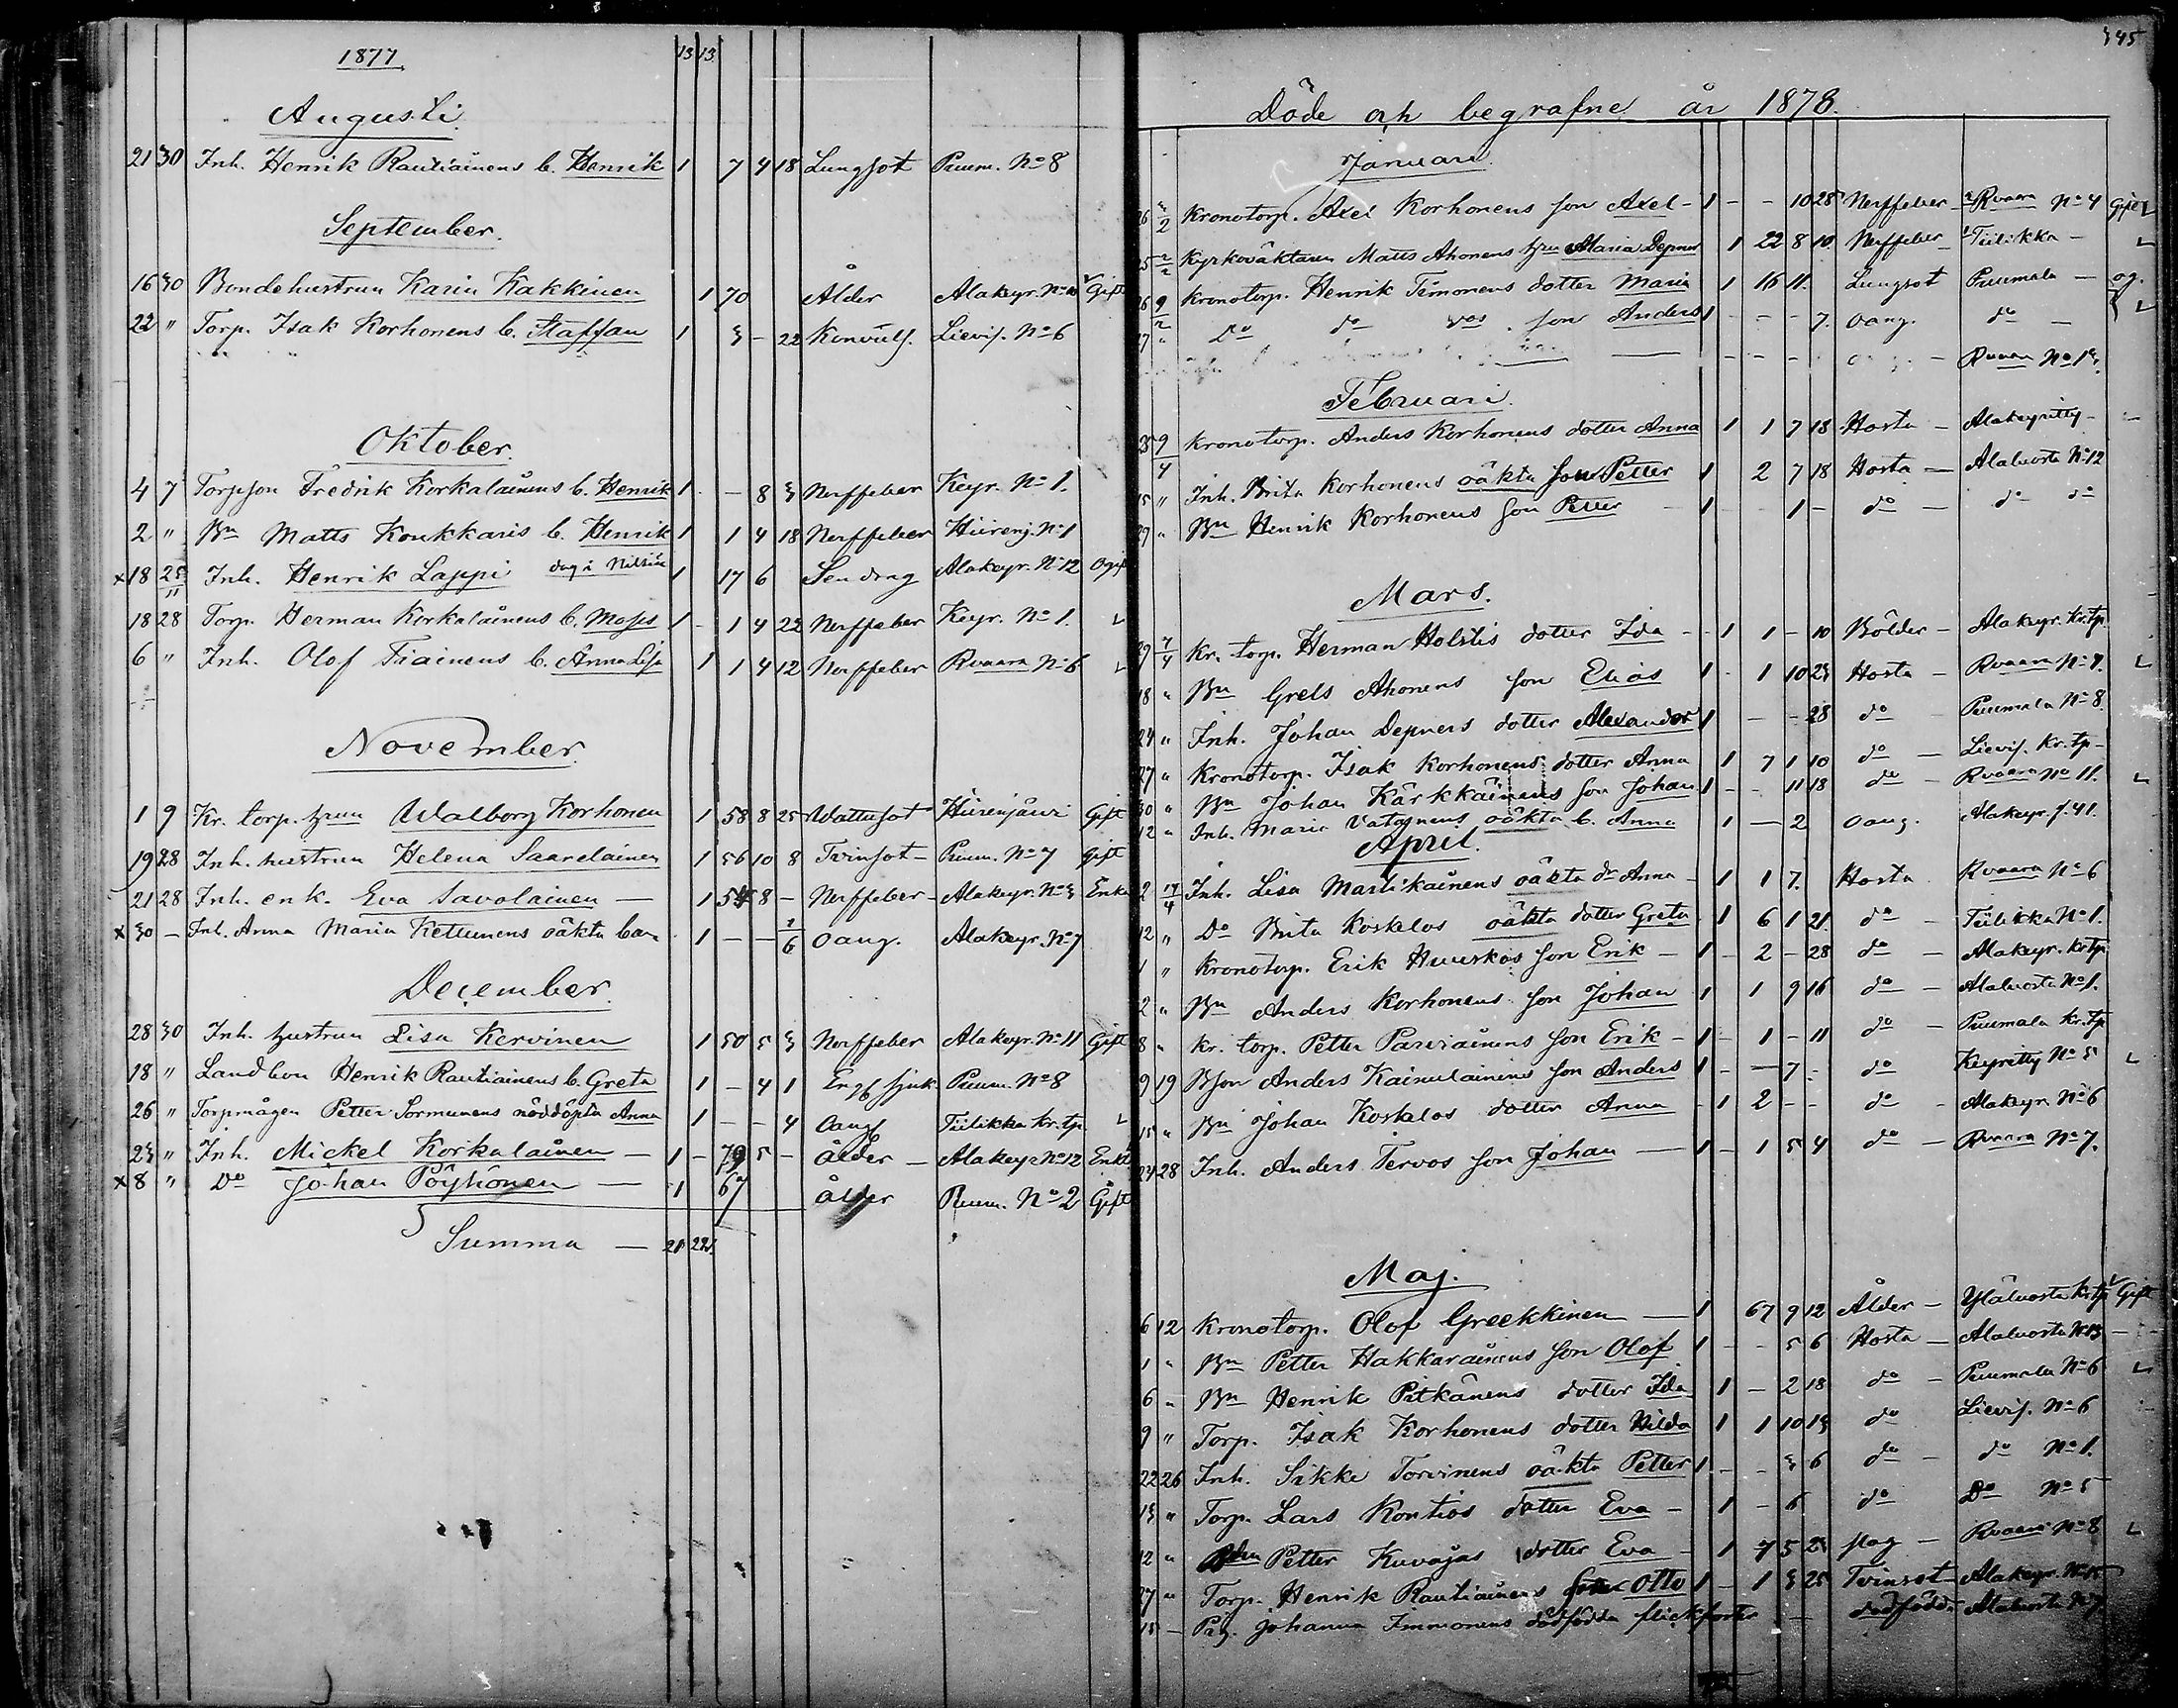 1877.
13 13
Augusti
21 30 Inh. Henrik Rautiainens b. Henrik 1 7 4 18 Lungsot Puum. No 8
September.
16 30 Bondehustrun Karin Kakkinen 1 70 Ålder Alakeyr. No 10 Gift
22 " Torp. Isak Korhonens b. Staffan 1 3 - 22 Konvuls. Lievis. No 6
Oktober.
4 7 Torpson Fredrik Korkalainens b. Henrik 1 - 8 3 Nerffeber Keyr. No 1.
2 " Bn Matts Konkkaris b. Henrik 1 1 4 18 Nerffeber Hiirenj. No 1
x 18 25/11 Inh. Henrik Lappi dog i Nilsiä 1 17 6 Sendrag Alakeyr. No 12 Ogift
18 28 Torp. Herman Korkalainens b. Moses 1 - 1 4 22 Nerffeber Keyr. No 1.
6 " Inh. Olof Tiainens b. Anna Lisa 1 1 4 12 Nerffeber Rvaara No 6
November.
1 9 Kr. torp. hrun Walborg Korhonen 1 58 8 25 Wattusot Hiirenjärvi Gift
19 28 Inh. hustrun Helena Saarelainen 1 56 10 8 Tvinsot - Puum. No 7 Gift
21 28 Inh. enk. Eva Savolainen - 1 54 8 - Nerffeber - Alakeyr. No 3 Enka
x 30 - Inh. Anna Maria Kettunens oäkta barn 1 - - 1/6 oang. Alakeyr. No 7
December.
28 30 Inh. hustrun Lisa Kervinen 1 50 5 3 Nerffeber Alakeyr. No 11 Gift
18 " Landbon Henrik Rautiainens b. Greta 1 - 4 1 Eng. sjuk. Puum. No 8
26 " Torpmågen Petter Sormunens nöddöpta Anna 1 - - 4 Oang. Tiilikka Kr. tp.
23 " Inh. Mickel Korkalainen - 1 - 79 5 - ålder - Alakeyr. No 12 Enkl
x 8 " Do Johan Pöyhönen - 1 67 ålder Puum. No 2 Gift
Summa - 21 22
345
Döde och begrafne år 1878.
Januari
26 3/2 Kronotorp. Axel Korhonens son Axel - 1 - - 10 28 Nerffeber - Rvaara No 4
25 2/2 Kyrkoväktaren Matts Ahonens hru Maria Depner 1 22 8 10 Nerffeber Tiilikka -
26 9/2 Kronotorp. Henrik Timonens dotter Maria 1 16 11. Lungsot Puumala - og.
27 " Do do dos son Anders 1 - - - 7. oang. do -
Rvaara No 13.
Februari.
25 9/4 Kronotorp. Anders Korhonens dotter Anna 1 1 7 18 Hosta - Alakeyritty -
15 " Inh. Brita Korhonens oäkta son Petter 1 2 7 18 Hosta - Alaluosta No 12
29 " Bn Henrik Korhonens son Petter - 1 - 1 - do - do do
Mars.
29 7/4 Kr. torp. Herman Holstis dotter Ida - 1 1 - 10 Bölder - Alakeyr. Kr. tp.
18 " Bn Grels Ahonens son Elias 1 - 1 10 23 Hosta - Rvaara No 7.
24 " Inh. Johan Depners dotter Alexander 1 - - 28 do - Puumala No 8.
27 " Kronotorp. Isak Korhonens dotter Anna 1 7 1 10 do - Lievis. Kr. tp -
30 " Bn Johan Kärkkäinens son Johan 1 - - 11 18 do - Rvaara No 11.
12 " Inh. Maria Vatanens oäkta b. Anna 1 - 2 oang. Alakeyr. f. 41.
April.
2 14/4 Inh. Lisa Martikainens oäkta dr Anna - 1 1 7. Hosta Rvaara No 6
12 " Do Brita Koskelos oäkta dotter Greta 1 6 1 21. do - Tiilikka No 1.
1 " Kronotorp. Erik Huuskos son Erik - 1 - 2 - 28 do - Alakeyr. Kr tp
2 " Bn Anders Korhonens son Johan 1 1 9 16 do - Alaluosta No 1.
8 " Kr. torp. Petter Parviainens son Erik - 1 - 1 - 11 do - Puumala Kr. tp
9 19 Bson Anders Kainulainens son Anders 1 - - 7 - do Keyritty No 5
15 " Bn Johan Koskelos dotter Anna - 1 2 - - do - Alakeyr. No 6
24 28 Inh. Anders Tervos son Johan - 1 - 1 5 4 do - Rvaara No 7.
Maj.
6 12 Kronotorp. Olof Greekkinen - 1 67 9 12 Ålder - Yläluosta Kr tp Gift
1 " Bn Petter Hakkarainens son Olof 1 - - 5 6 Hosta - Alaluosta No 13 -
6 " Bn Henrik Pitkänens dotter Ida 1 - 2 18 do - Puumala No 6
9 " Torp. Isak Korhonens dotter Hilda 1 1 10 13 do Lievis. No 6
22 26 Inh. Sikke Torvinens oäkta Petter 1 - - 3 6 do - do No 1.
13 " Torp. Lars Kontios dotter Eva - 1 - 6 do Do No 5
12 " Petter Kuvajas dotter Eva - 1 7 5 23 slag - Rvaara No 8
27 " Torp. Henrik Rautiainens son Otto 1 - 1 3 25 Tvinsot Alakeyr. No 15
15 - Pig. Johanna Immonens dödfödda flickfoster - dödfödd. Alaluosta No 7